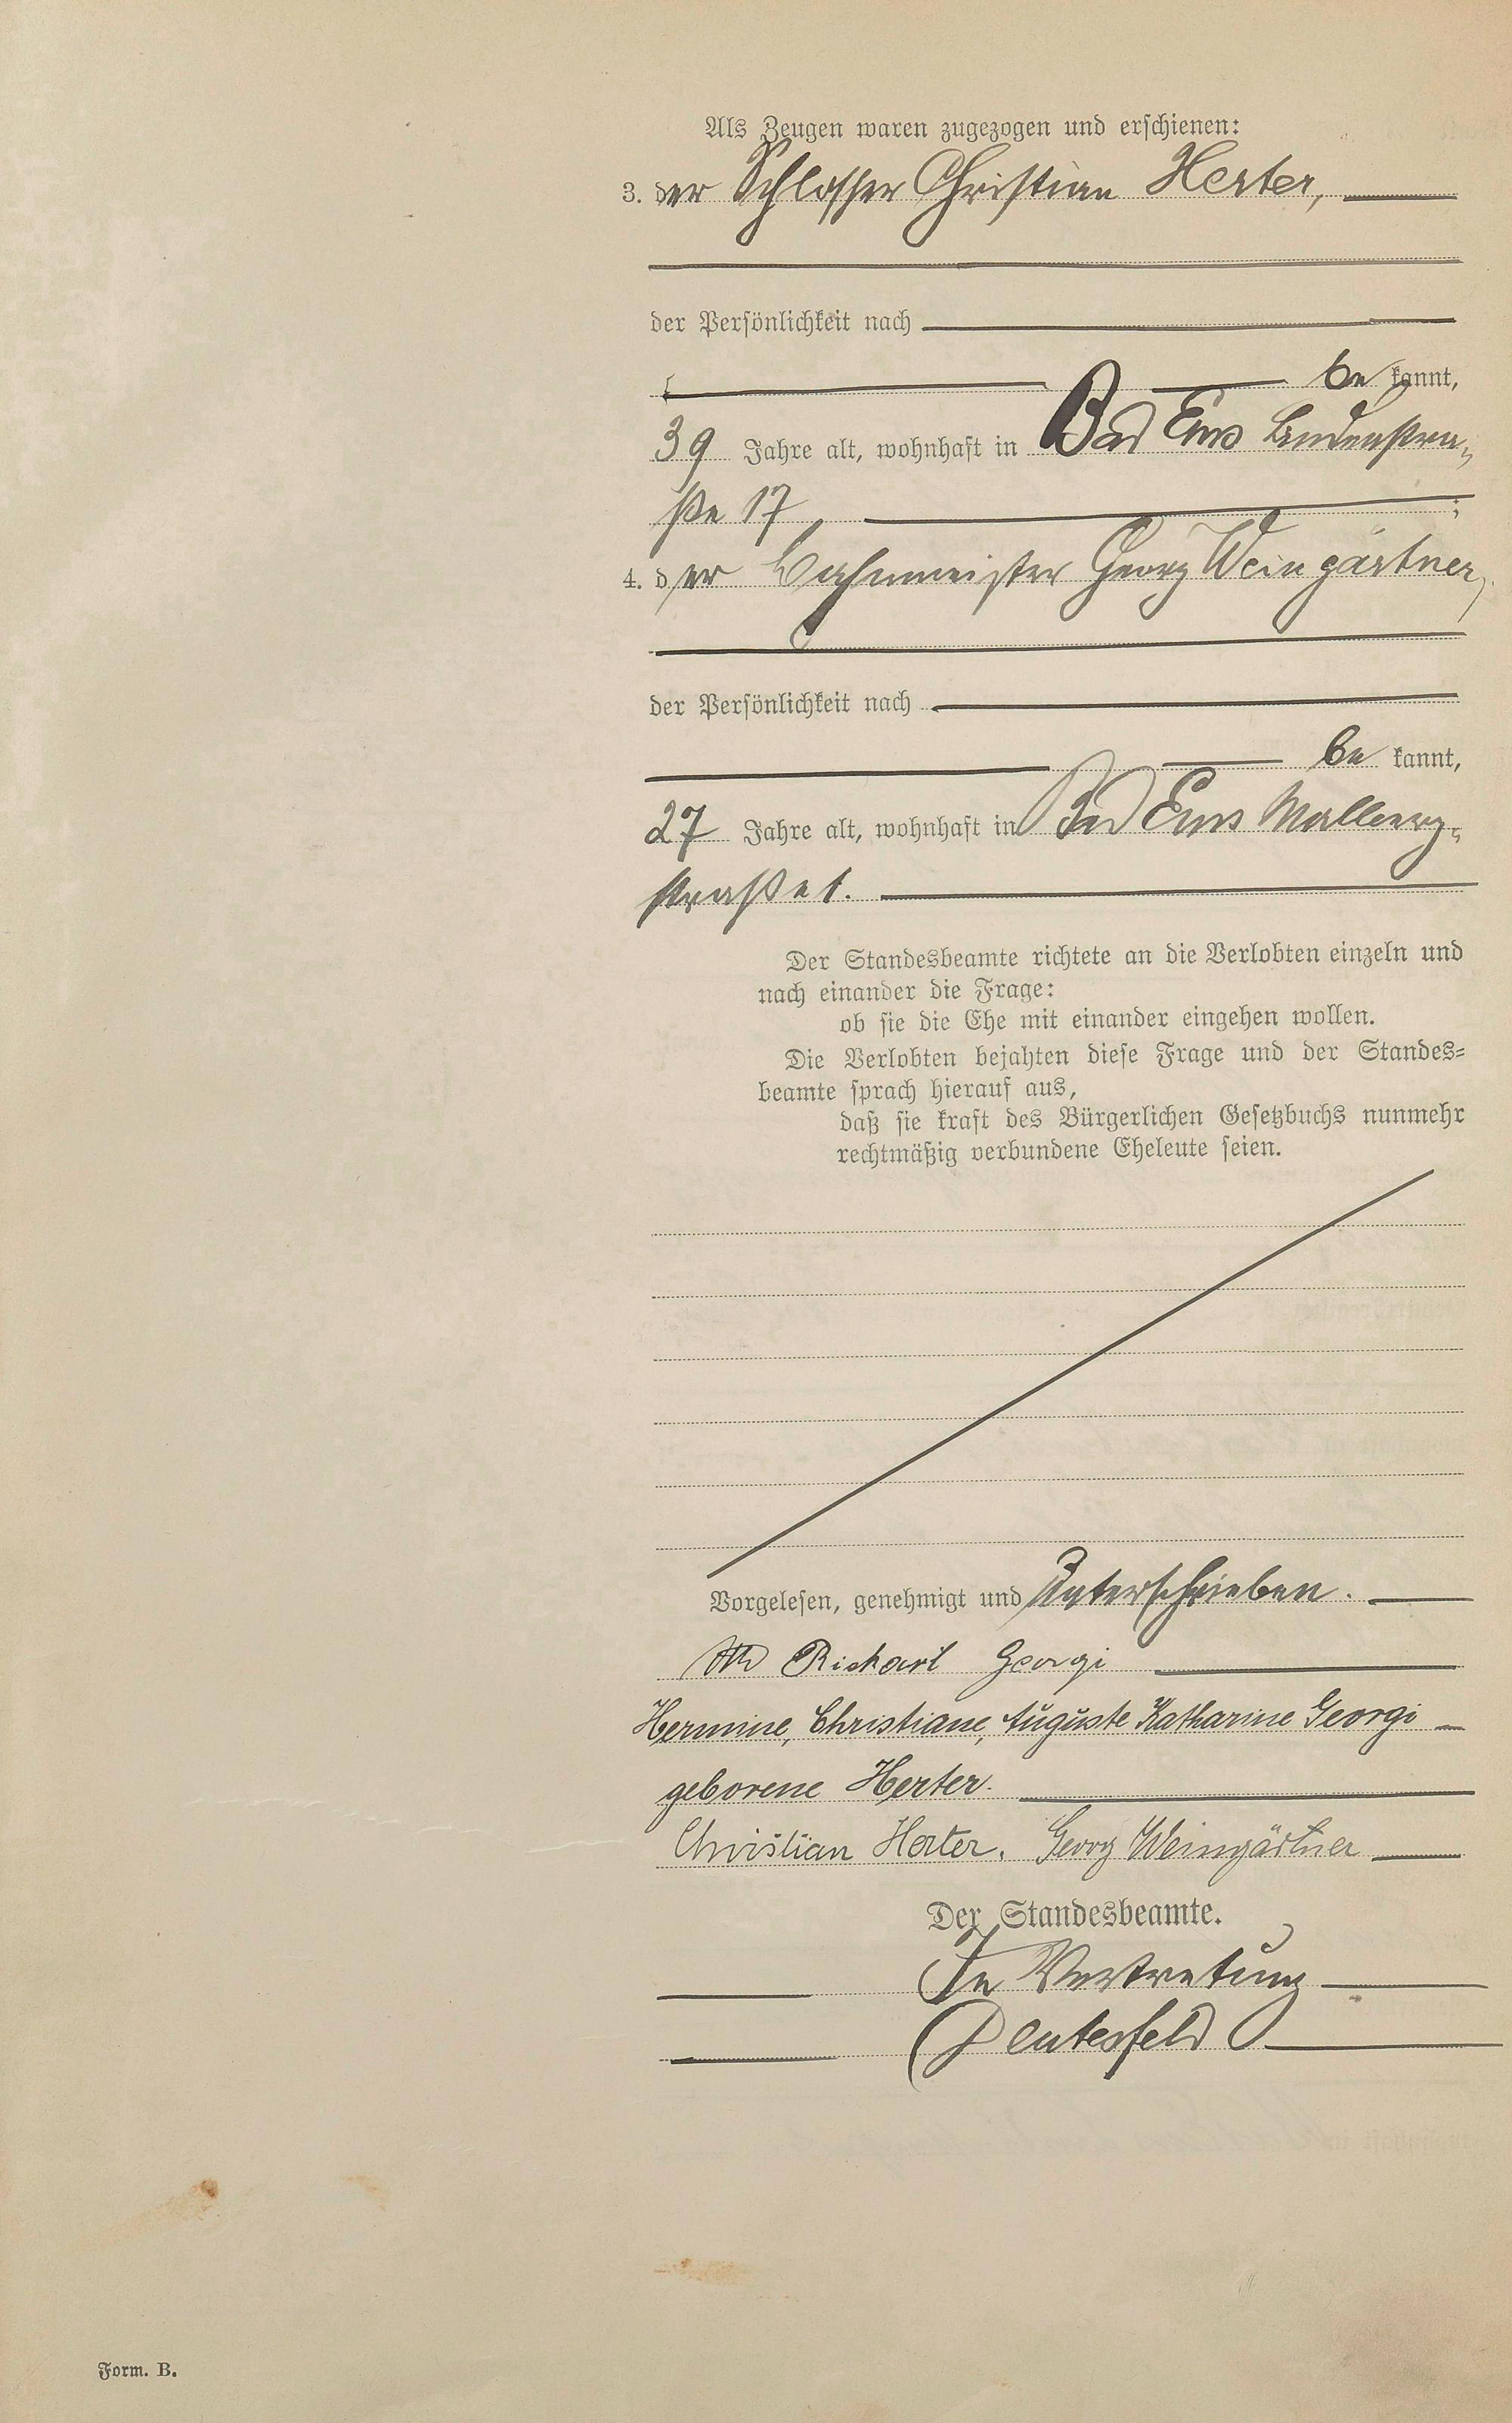 Als Zeugen waren zugezogen und erschienen:
3. der Schlosser Christian Herter,
der Persönlichkeit nach
be kannt,
39 Jahre alt, wohnhaft in Bad Ems Lindenstra-
ße 17 ;
4. der Bahnmeister Georg Weingärtner,
der Persönlichkeit nach
be kannt,
27 Jahre alt, wohnhaft in Bad Ems Mallberg-
straße 1.
Der Standesbeamte richtete an die Verlobten einzeln und
nach einander die Frage:
ob sie die Ehe mit einander eingehen wollen.
Die Verlobten bejahten diese Frage und der Standes-
beamte sprach hierauf aus,
daß sie kraft des Bürgerlichen Gesetzbuchs nunmehr
rechtmäßig verbundene Eheleute seien.
Vorgelesen, genehmigt und Unterschrieben.
Richard Georgi
Hermine, Christiane, Auguste Katharine Georgi
geborene Herter.
Christian Herter. Georg Weingärtner
Der Standesbeamte.
In Vertretung
Deutesfeld
Form. B.